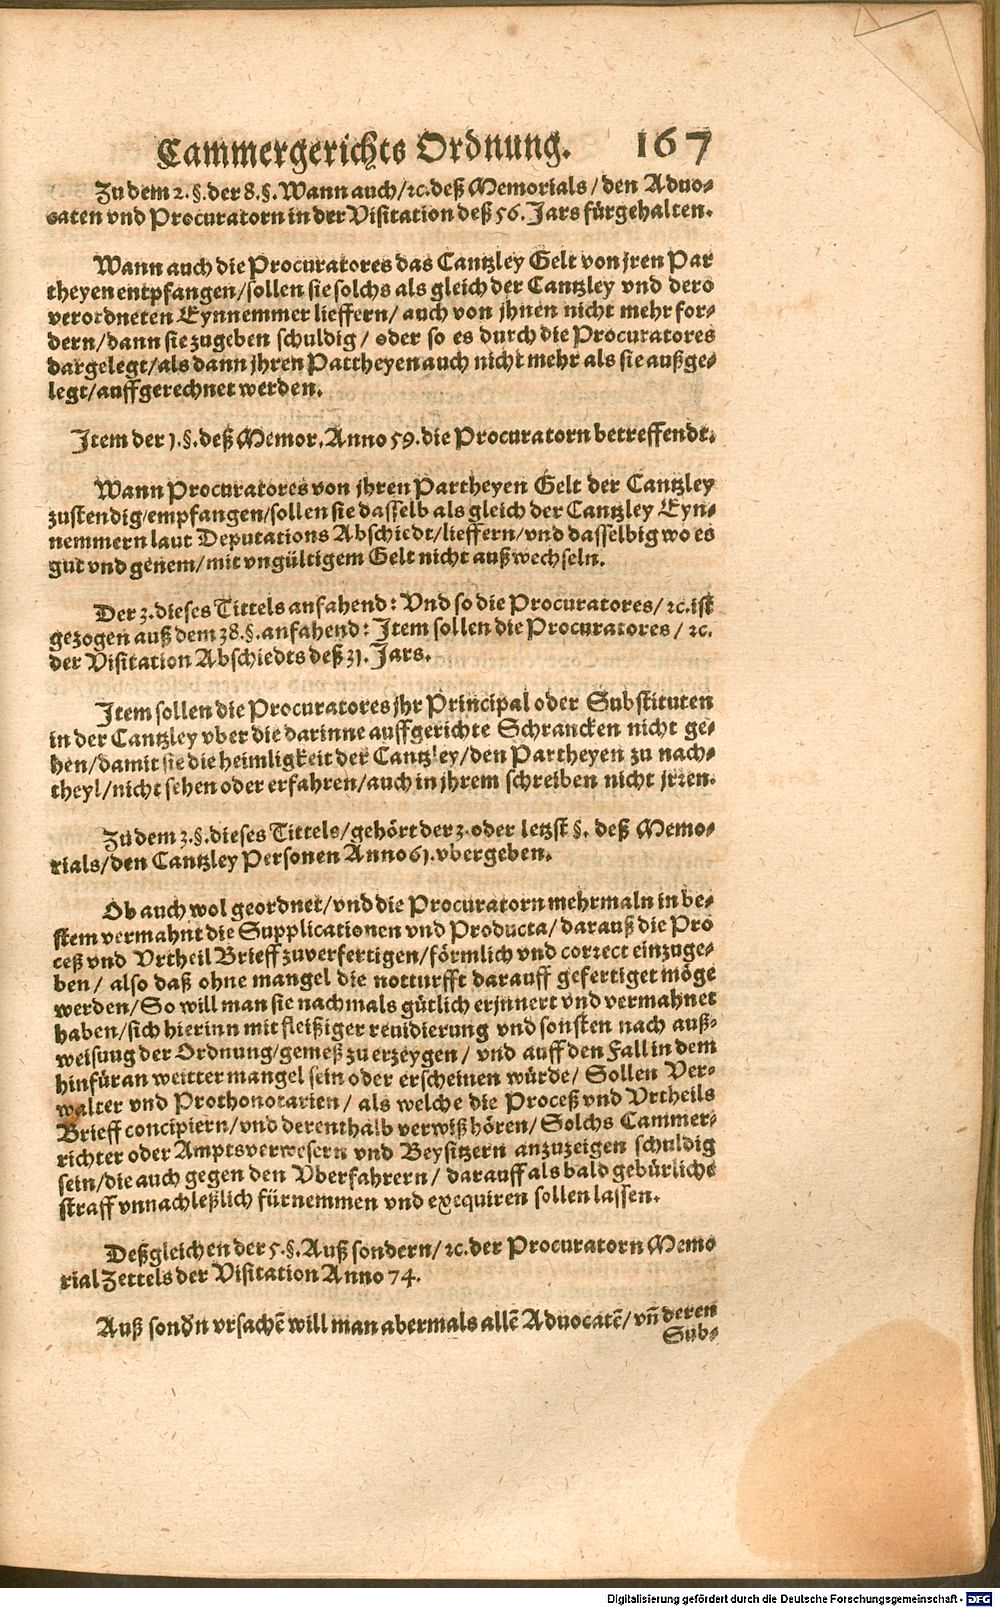 Cammergerichts Ordnung. 167
Zu dem 2. §. der 8. §. Wann auch/ ꝛc. deß Memorials/ den Aduo-
caten vnd Procuratorn in der Visitation deß 56. Jars fürgehalten.
Wann auch die Procuratores das Cantzley Gelt von jren Par
theyen entpfangen/ sollen sie solchs als gleich der Cantzley vnd dero
verordneten Eynnemmer lieffern/ auch von jhnen nicht mehr for-
dern/ dann sie zugeben schuldig/ oder so es durch die Procuratores
dargelegt/ als dann jhren Partheyen auch nicht mehr als sie außge-
legt/ auffgerechnet werden.
Item der 1. §. deß Memor. Anno 59. die Procuratorn betreffendt.
Wann Procuratores von jhren Partheyen Gelt der Cantzley
zustendig/ empfangen/ sollen sie dasselb als gleich der Cantzley Eyn-
nemmern laut Deputations Abschiedt/ lieffern/ vnd dasselbig wo es
gut vnd genem/ mit vngültigem Gelt nicht außwechseln.
Der 3. dieses Tittels anfahend: Vnd so die Procuratores/ ꝛc. ist
gezogen auß dem 38. §. anfahend: Item sollen die Procuratores/ ꝛc.
der Visitation Abschiedts deß 31. Jars.
Item sollen die Procuratores jhr Principal oder Substituten
in der Cantzley vber die darinne auffgerichte Schrancken nicht ge-
hen/ damit sie die heimligkeit der Cantzley/ den Partheyen zu nach-
theyl/ nicht sehen oder erfahren/ auch in jhrem schreiben nicht jrren.
Zu dem 3. §. dieses Tittels/ gehört der 3. oder letzst §. deß Memo-
rials/ den Cantzley Personen Anno 61. vbergeben.
Ob auch wol geordnet/ vnd die Procuratorn mehrmaln in be-
stem vermahnt die Supplicationen vnd Producta/ darauß die Pro
ceß vnd Vrtheil Brieff zuverfertigen/ förmlich vnd correct einzuge-
ben/ also daß ohne mangel die notturfft darauff gefertiget möge
werden/ So will man sie nachmals gütlich erjnnert vnd vermahnet
haben/ sich hierinn mit fleißiger reuidierung vnd sonsten nach auß-
weisung der Ordnung/ gemeß zu erzeygen/ vnd auff den Fall in dem
hinfüran weitter mangel sein oder erscheinen würde/ Sollen Ver-
walter vnd Prothonotarien/ als welche die Proceß vnd Vrtheils
Brieff concipiern/ vnd derenthalb verwiß hören/ Solchs Cammer-
richter oder Amptsverwesern vnd Beysitzern anzuzeigen schuldig
sein/ die auch gegen den Vberfahrern/ darauff als bald gebürliche
straff vnnachleßlich fürnemmen vnd exequiren sollen lassen.
Deßgleichen der 5. §. Auß sondern/ ꝛc. der Procuratorn Memo
rial Zettels der Visitation Anno 74.
Auß sonďn vrsachē will man abermals allē Aduocatē/ vñ deren
Sub-
Digitalisierung gefördert durch die Deutsche Forschungsgemeinschaft - DFG